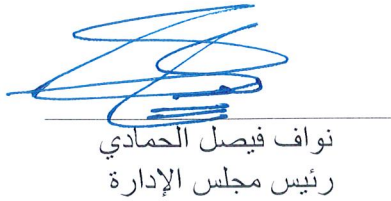 نواف فيصل الحمادي
رئيس مجلس الإدارة